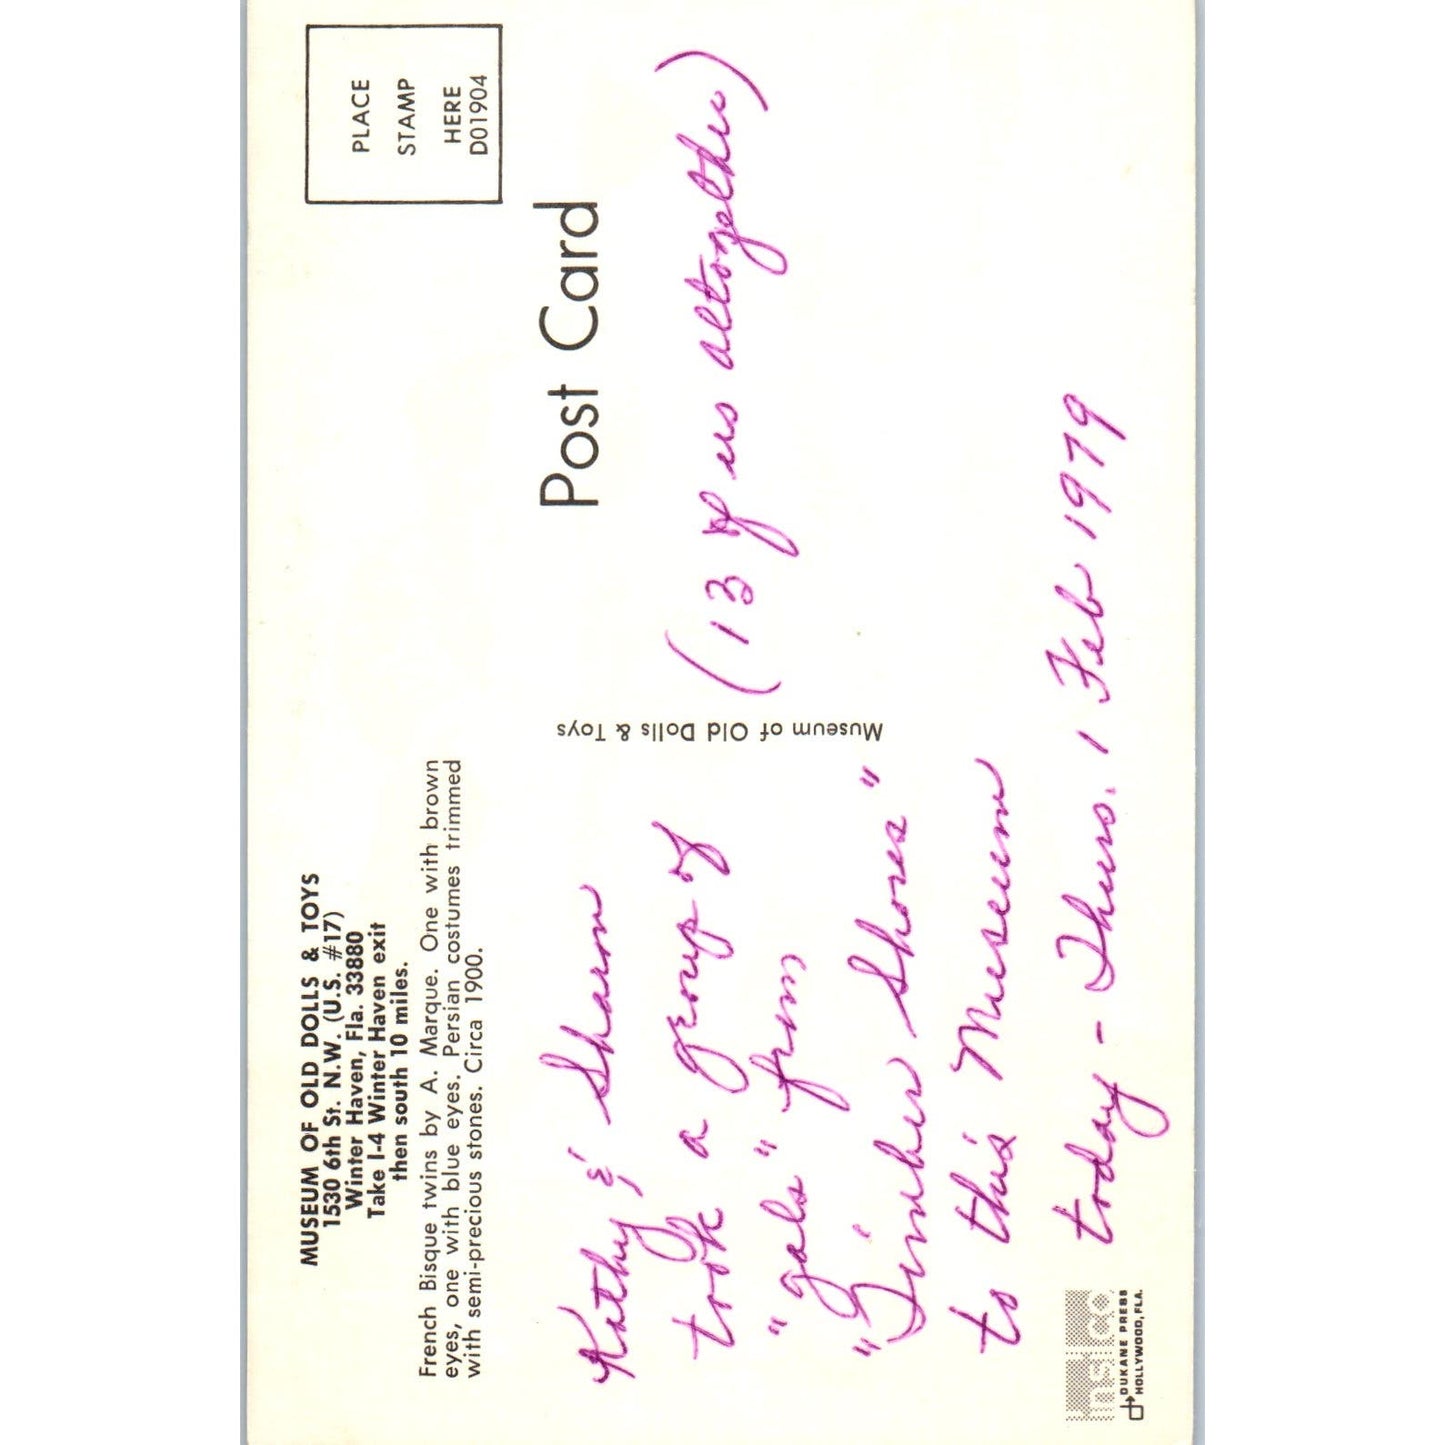 MUSEUM OF OLD DOLLS & TOYS
1530 6th St. N.W. (U.S. #17)
Winter Haven, Fla. 33880
Take I-4 Winter Haven exit
then south 10 miles.
French Bisque twins by A. Marque. One with brown
eyes, one with blue eyes. Persian costumes trimmed
with semi-precious stones. Circa 1900.
PLACE
STAMP
HERE
D01904
Post Card
Museum of Old Dolls & Toys
Kathy & Sharon
took a group of
"gals" from
"Timber Shores"
to this Museum
today - Thurs. 1 Feb 1979
(13 of us altogether)
DUKANE PRESS
HOLLYWOOD, FLA.